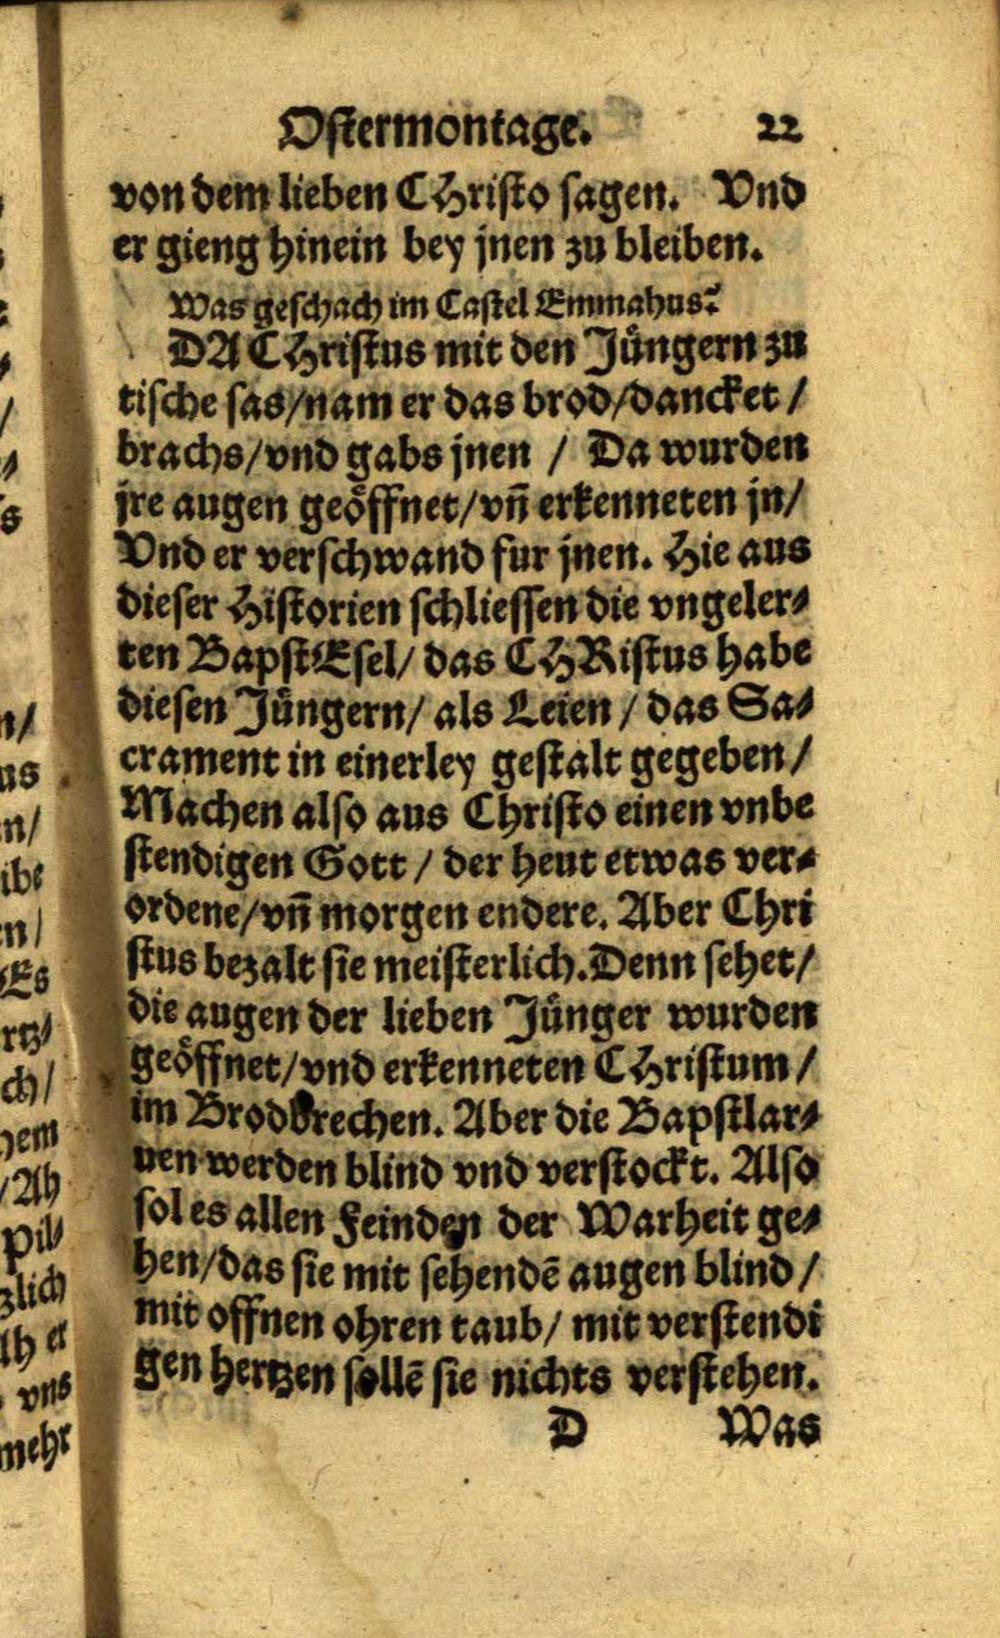 Ostermontage. 22
von dem lieben CHristo sagen. Vnd
er gieng hinein bey jnen zu bleiben.
Was geschach im Castel Emmahus?
DA CHristus mit den Jüngern zu
tische sas/nam er das brod/dancket/
brachs/vnd gabs jnen / Da wurden
jre augen geöffnet/vñ erkenneten jn/
Vnd er verschwand fur jnen. Hie aus
dieser Historien schliessen die vngeler⸗
ten BapstEsel/ das CHRistus habe
diesen Jüngern/ als Leien / das Sa⸗
crament in einerley gestalt gegeben/
Machen also aus Christo einen vnbe
stendigen Gott / der heut etwas ver⸗
ordene/vñ morgen endere. Aber Chri
stus bezalt sie meisterlich. Denn sehet/
die augen der lieben Jünger wurden
geöffnet/vnd erkenneten CHristum/
im Brodbrechen. Aber die Bapstlar⸗
uen werden blind vnd verstockt. Also
sol es allen Feinden der Warheit ge⸗
hen/das sie mit sehendē augen blind/
mit offnen ohren taub/ mit verstendi
gen hertzen sollē sie nichts verstehen.
D Was
n/
us
n/
ibe
en/
Es
rtz⸗
ch/
hem
/Ah
Pil⸗
zlich
lh er
vns
mehr